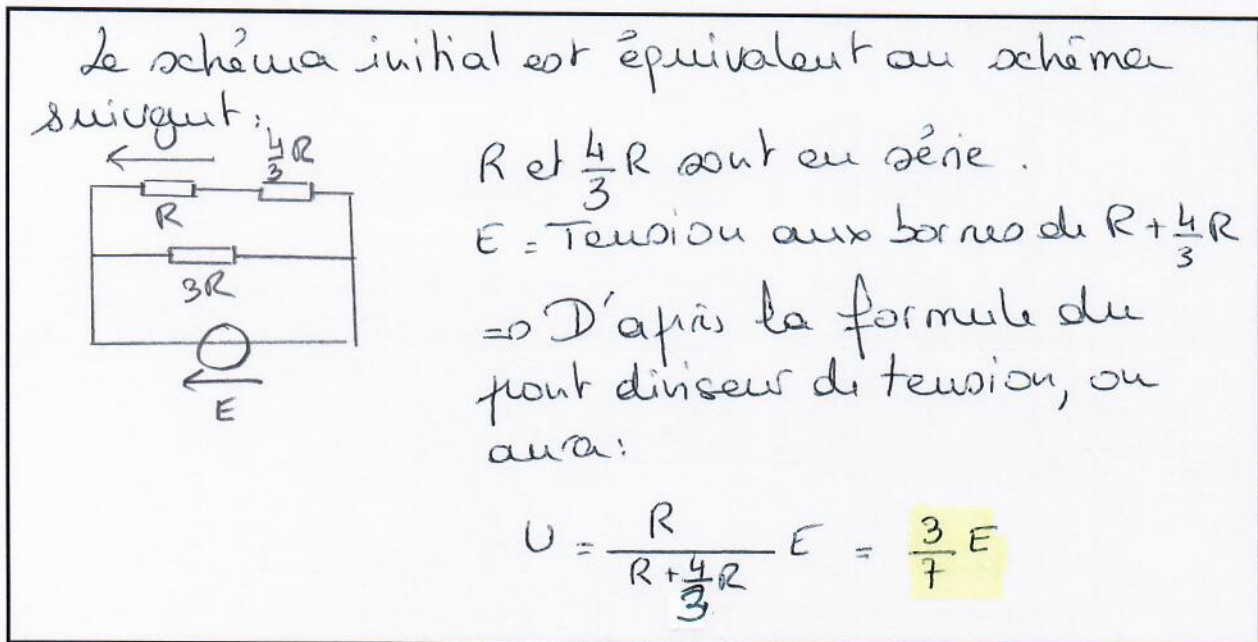 Le schéma initial est équivalent au schéma
suivant :
4/3 R
R
3R
E
R et 4/3 R sont en série.
E = Tension aux bornes de R + 4/3 R
=> D'après la formule du
pont diviseur de tension, on
aura :
U = R / (R + 4/3 R) E = 3/7 E